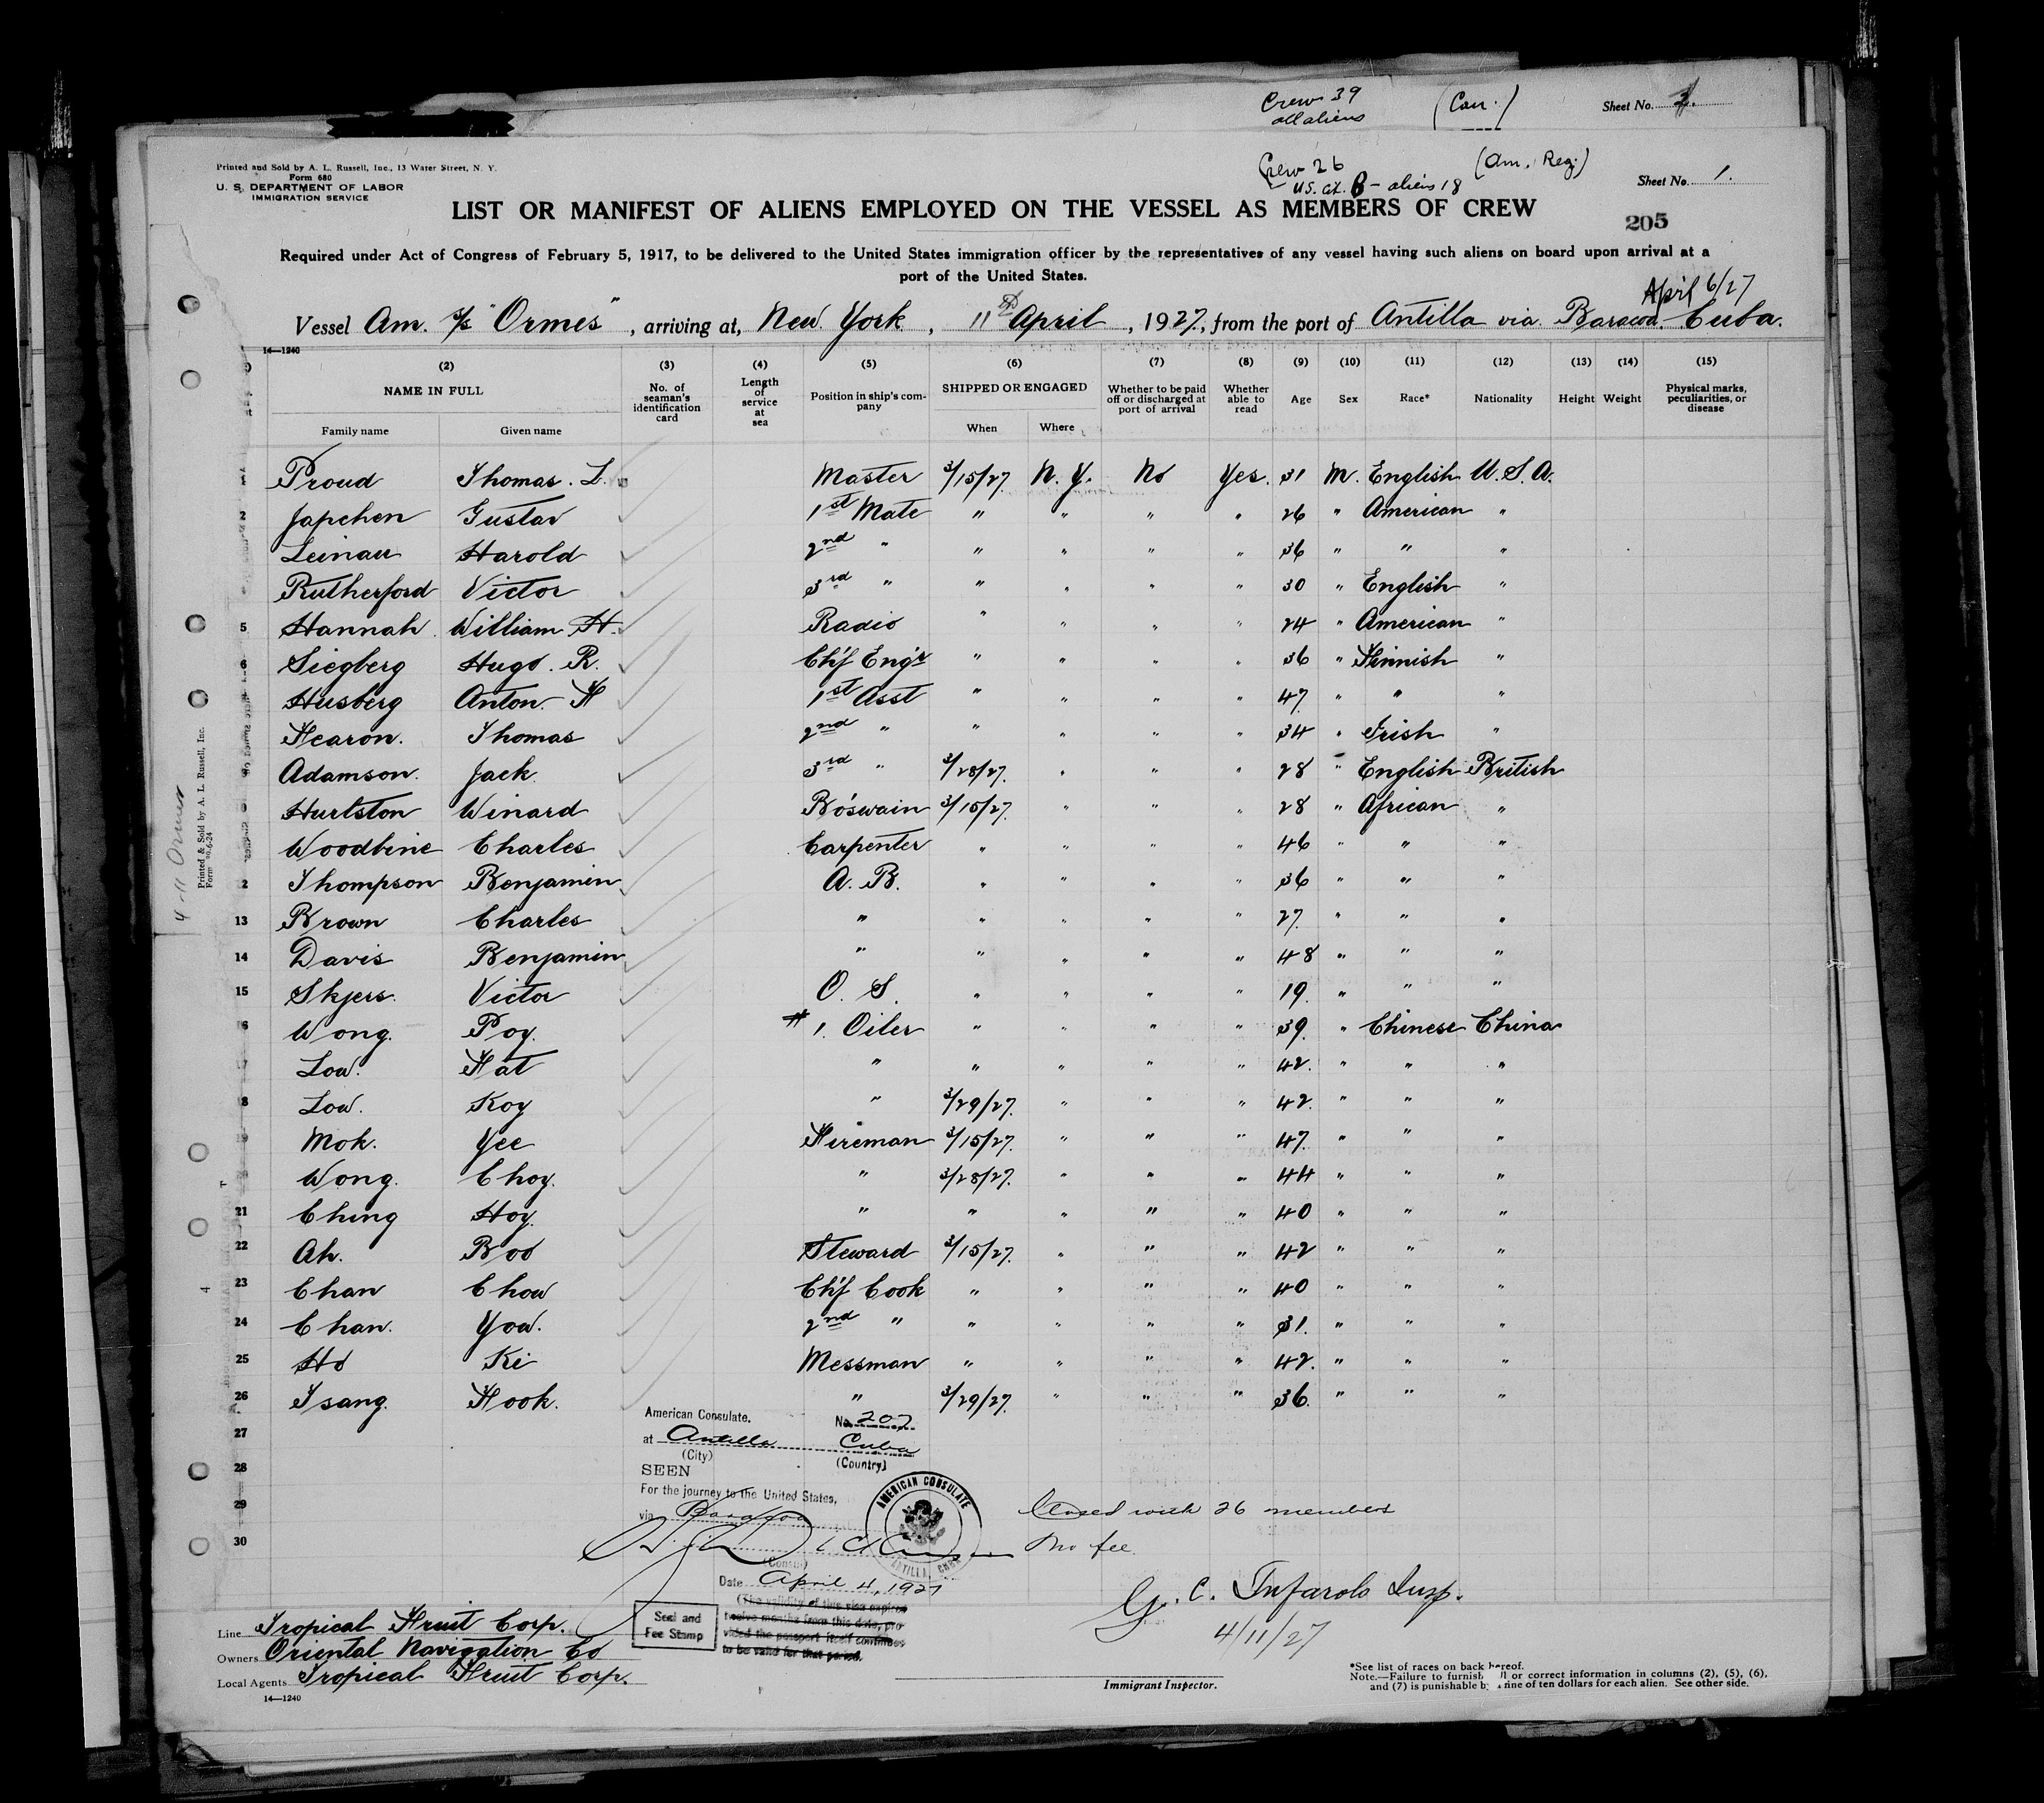 Crew 39 (Can.) Sheet No.
all aliens
Printed and Sold by A. L. Russell, Inc., 13 Water Street, N. Y.
Form 680
U. S. DEPARTMENT OF LABOR
IMMIGRATION SERVICE
Crew 26 (Am. Reg.)
U.S. Cit. 8 - aliens 18
Sheet No. 1.
LIST OR MANIFEST OF ALIENS EMPLOYED ON THE VESSEL AS MEMBERS OF CREW
205
Required under Act of Congress of February 5, 1917, to be delivered to the United States immigration officer by the representatives of any vessel having such aliens on board upon arrival at a
port of the United States.
April 6/27
Vessel Am. S/S "Ormes", arriving at, New York, 11th April, 1927, from the port of Antilla via Baracoa. Cuba.
14—1240
(2) (3) (4) (5) (6) (7) (8) (9) (10) (11) (12) (13) (14) (15)
NAME IN FULL
Family name Given name
No. of seaman's identification card
Length of service at sea
Position in ship's company
SHIPPED OR ENGAGED
When Where
Whether to be paid off or discharged at port of arrival
Whether able to read
Age Sex Race* Nationality Height Weight
Physical marks, peculiarities, or disease
1 Proud Thomas. L. Master 3/15/27. N. Y. No Yes. 31 M. English U. S. A.
2 Japchen Gustav 1st Mate " " " " 26 " American "
Leinau Harold 2nd " " " " " 36 " " "
Rutherford Victor 3rd " " " " " 30 " English "
5 Hannah William H. Radio " " " " 24 " American "
6 Siegberg Hugo. R. Ch'f Eng'r " " " " 36 " Finnish "
Husberg Anton. F 1st Asst " " " " 47. " " "
Fearon. Thomas 2nd " " " " " 34 " Irish "
Adamson. Jack 3rd " 3/28/27. " " " 28 " English British
Hurlston Winard Bo'swain 3/15/27. " " " 28 " African "
Woodbine Charles Carpenter " " " " 46 " " "
2 Thompson Benjamin A. B. " " " " 36 " " "
13 Brown Charles " " " " " 27. " " "
14 Davis Benjamin " " " " " 48 " " "
15 Skyers. Victor O. S. " " " " 19. " " "
6 Wong. Poy. #1. Oiler " " " " 39. " Chinese China
7 Low. Fat " " " " " 42. " " "
8 Low. Koy " 3/29/27. " " " 42. " " "
19 Mok. Yee Fireman 3/15/27. " " " 47. " " "
Wong. Choy. " 3/28/27. " " " 44 " " "
21 Ching Hoy. " " " " " 40 " " "
22 Ah. Boo Steward 3/15/27. " " " 42 " " "
23 Chan Chow Ch'f Cook " " " " 40 " " "
24 Chan. Yow. 2nd " " " " " 31. " " "
25 Ho Ki Messman " " " " 42. " " "
26 Tsang. Fook. " 3/29/27. " " " 36. " " "
27
28
29
30
American Consulate. No. 207
at Antilla Cuba
(City) (Country)
SEEN
For the journey to the United States,
via Baracoa
AMERICAN CONSULATE
ANTILLA, CUBA
(Consul)
Date April 4, 1927
(The validity of this visa expires
twelve months from this date, pro-
vided the passport itself continues
to be valid for that period.
Seal and
Fee Stamp
Closed with 26 members
No fee.
G. C. Insp.
4/11/27
Line Tropical Fruit Corp.
Owners Oriental Navigation Co
Local Agents Tropical Fruit Corp.
14—1240
Immigrant Inspector.
*See list of races on back hereof.
Note.—Failure to furnish or correct information in columns (2), (5), (6),
and (7) is punishable by fine of ten dollars for each alien. See other side.
Printed & Sold by A. L. Russell, Inc.
4-11 Ormes
4